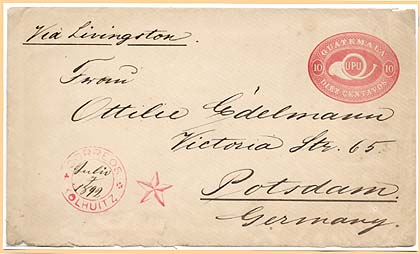 Via Livingston.
GUATEMALA
10 UPU 10
DIEZ CENTAVOS
Frau
Ottilie Edelmann
Victoria Str. 65
Potsdam.
Germany.
CORREOS
Julio
7
1899
COLHUITZ